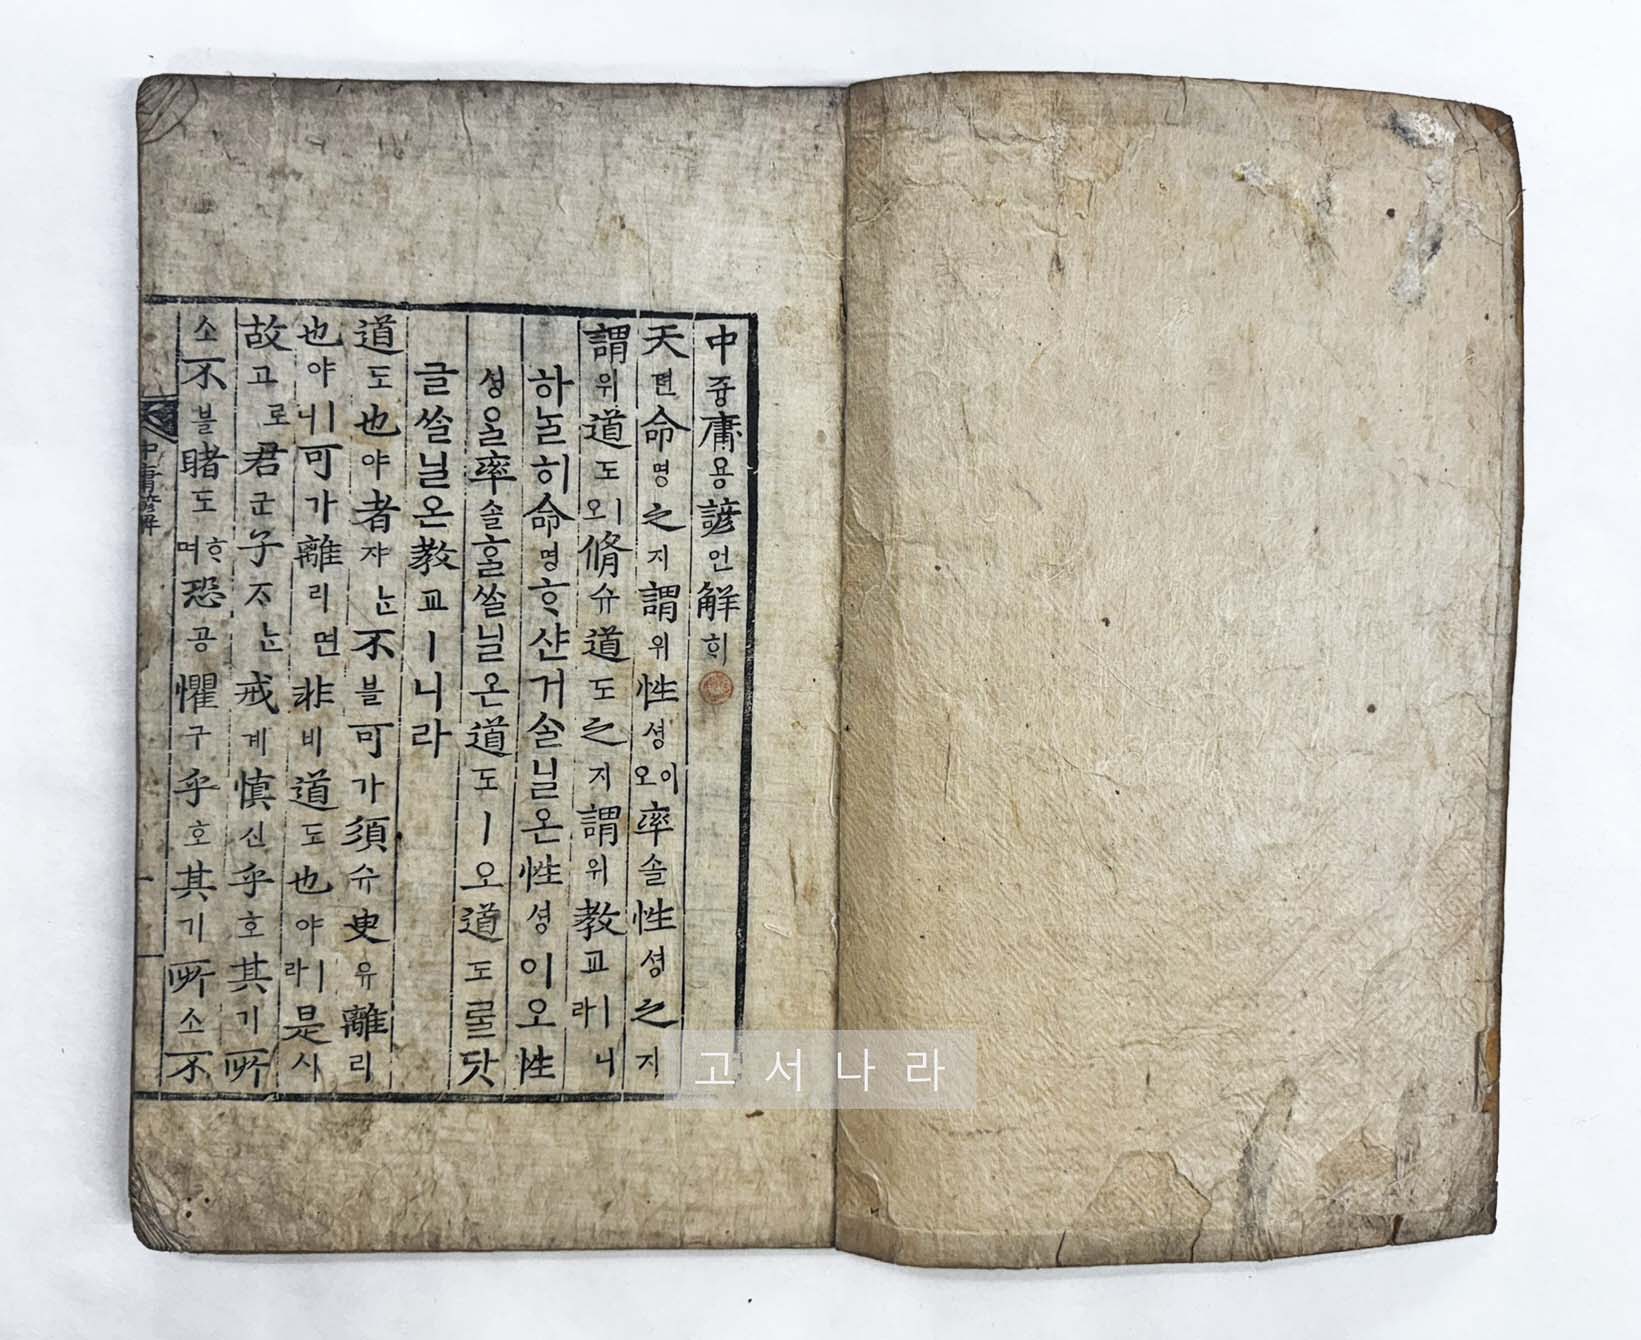 中듕庸용諺언解ᄒᆡ
天텬命명之지謂위性셩이오率솔性셩之지
謂위道도ㅣ오脩슈道도之지謂위教교ㅣ니라
하ᄂᆞᆯ히命명ᄒᆞ샨거ᄉᆞᆯ닐온性셩이오性
셩을率솔홀ᄡᅳᆯ닐온道도ㅣ오道도ᄅᆞᆯ닷
글ᄡᅳᆯ닐온教교ㅣ니라
道도也야者쟈ᄂᆞᆫ不블可가須슈臾유離리
也야ㅣ니可가離리면非비道도也야ㅣ라是시
故고로君군子ᄌᆞᄂᆞᆫ戒계愼신乎호其기所
소不블睹도ᄒᆞ며恐공懼구乎호其기所소不
中庸諺解
一
고서나라